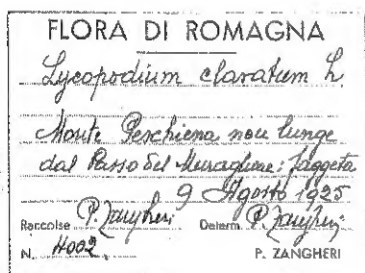 FLORA DI ROMAGNA
Lycopodium clavatum L.
Monte Peschiena non lunge
dal Passo del Muraglione: faggeta
9 Agosto 1925
Raccolse P. Zangheri Determ. P. Zangheri
N. 4002 P. ZANGHERI